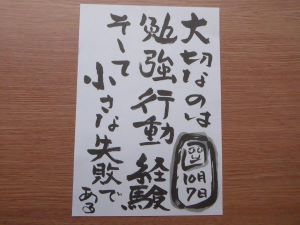 大切なのは
勉強行動経験
そして
小さな失敗で
ある
10月
7日